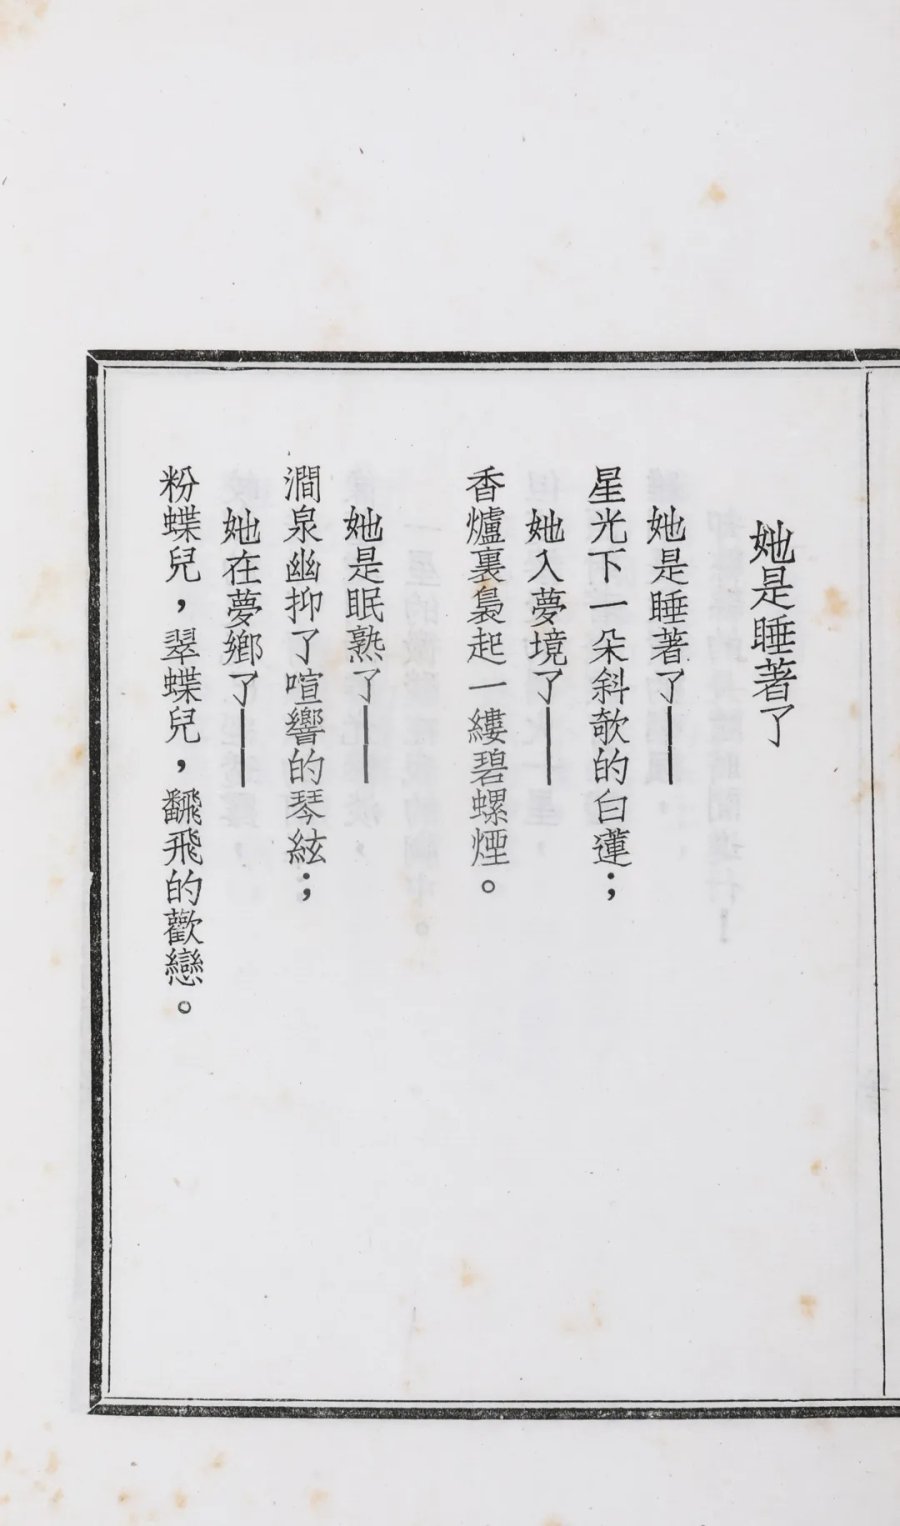 她是睡著了
她是睡著了——
星光下一朵斜欹的白蓮；
她入夢境了——
香爐裏裊起一縷碧螺煙。
她是眠熟了——
澗泉幽抑了喧響的琴絃；
她在夢鄉了——
粉蝶兒，翠蝶兒，翻飛的歡戀。